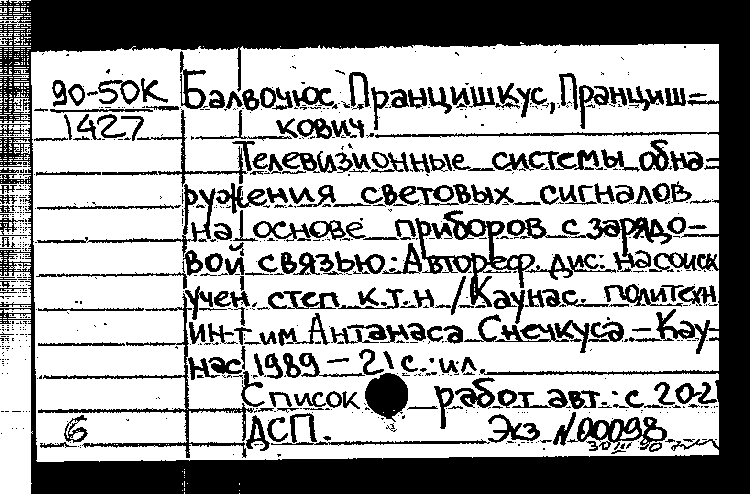 90-50К Балвочюс Пранцишкус, Пранциш=
1427 кович.
Телевизионные системы обна=
ружения световых сигналов
на основе приборов с зарядо-
вой связью: Автореф. дис. на соиск
учен. степ к.т.н / Каунас. политехн
ин-т им Антанаса Снечкуса - Кау-
нас, 1989 - 21 с.: ил.
Список работ авт.: с 20-2
6 ДСП. Экз N 00098